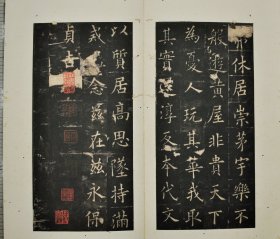 休居崇茅宇樂不
般遊黄屋非貴天下
為憂人玩其華我取
其實還淳反本代文
以質居高思墜持滿
戒念兹在兹永保
貞吉